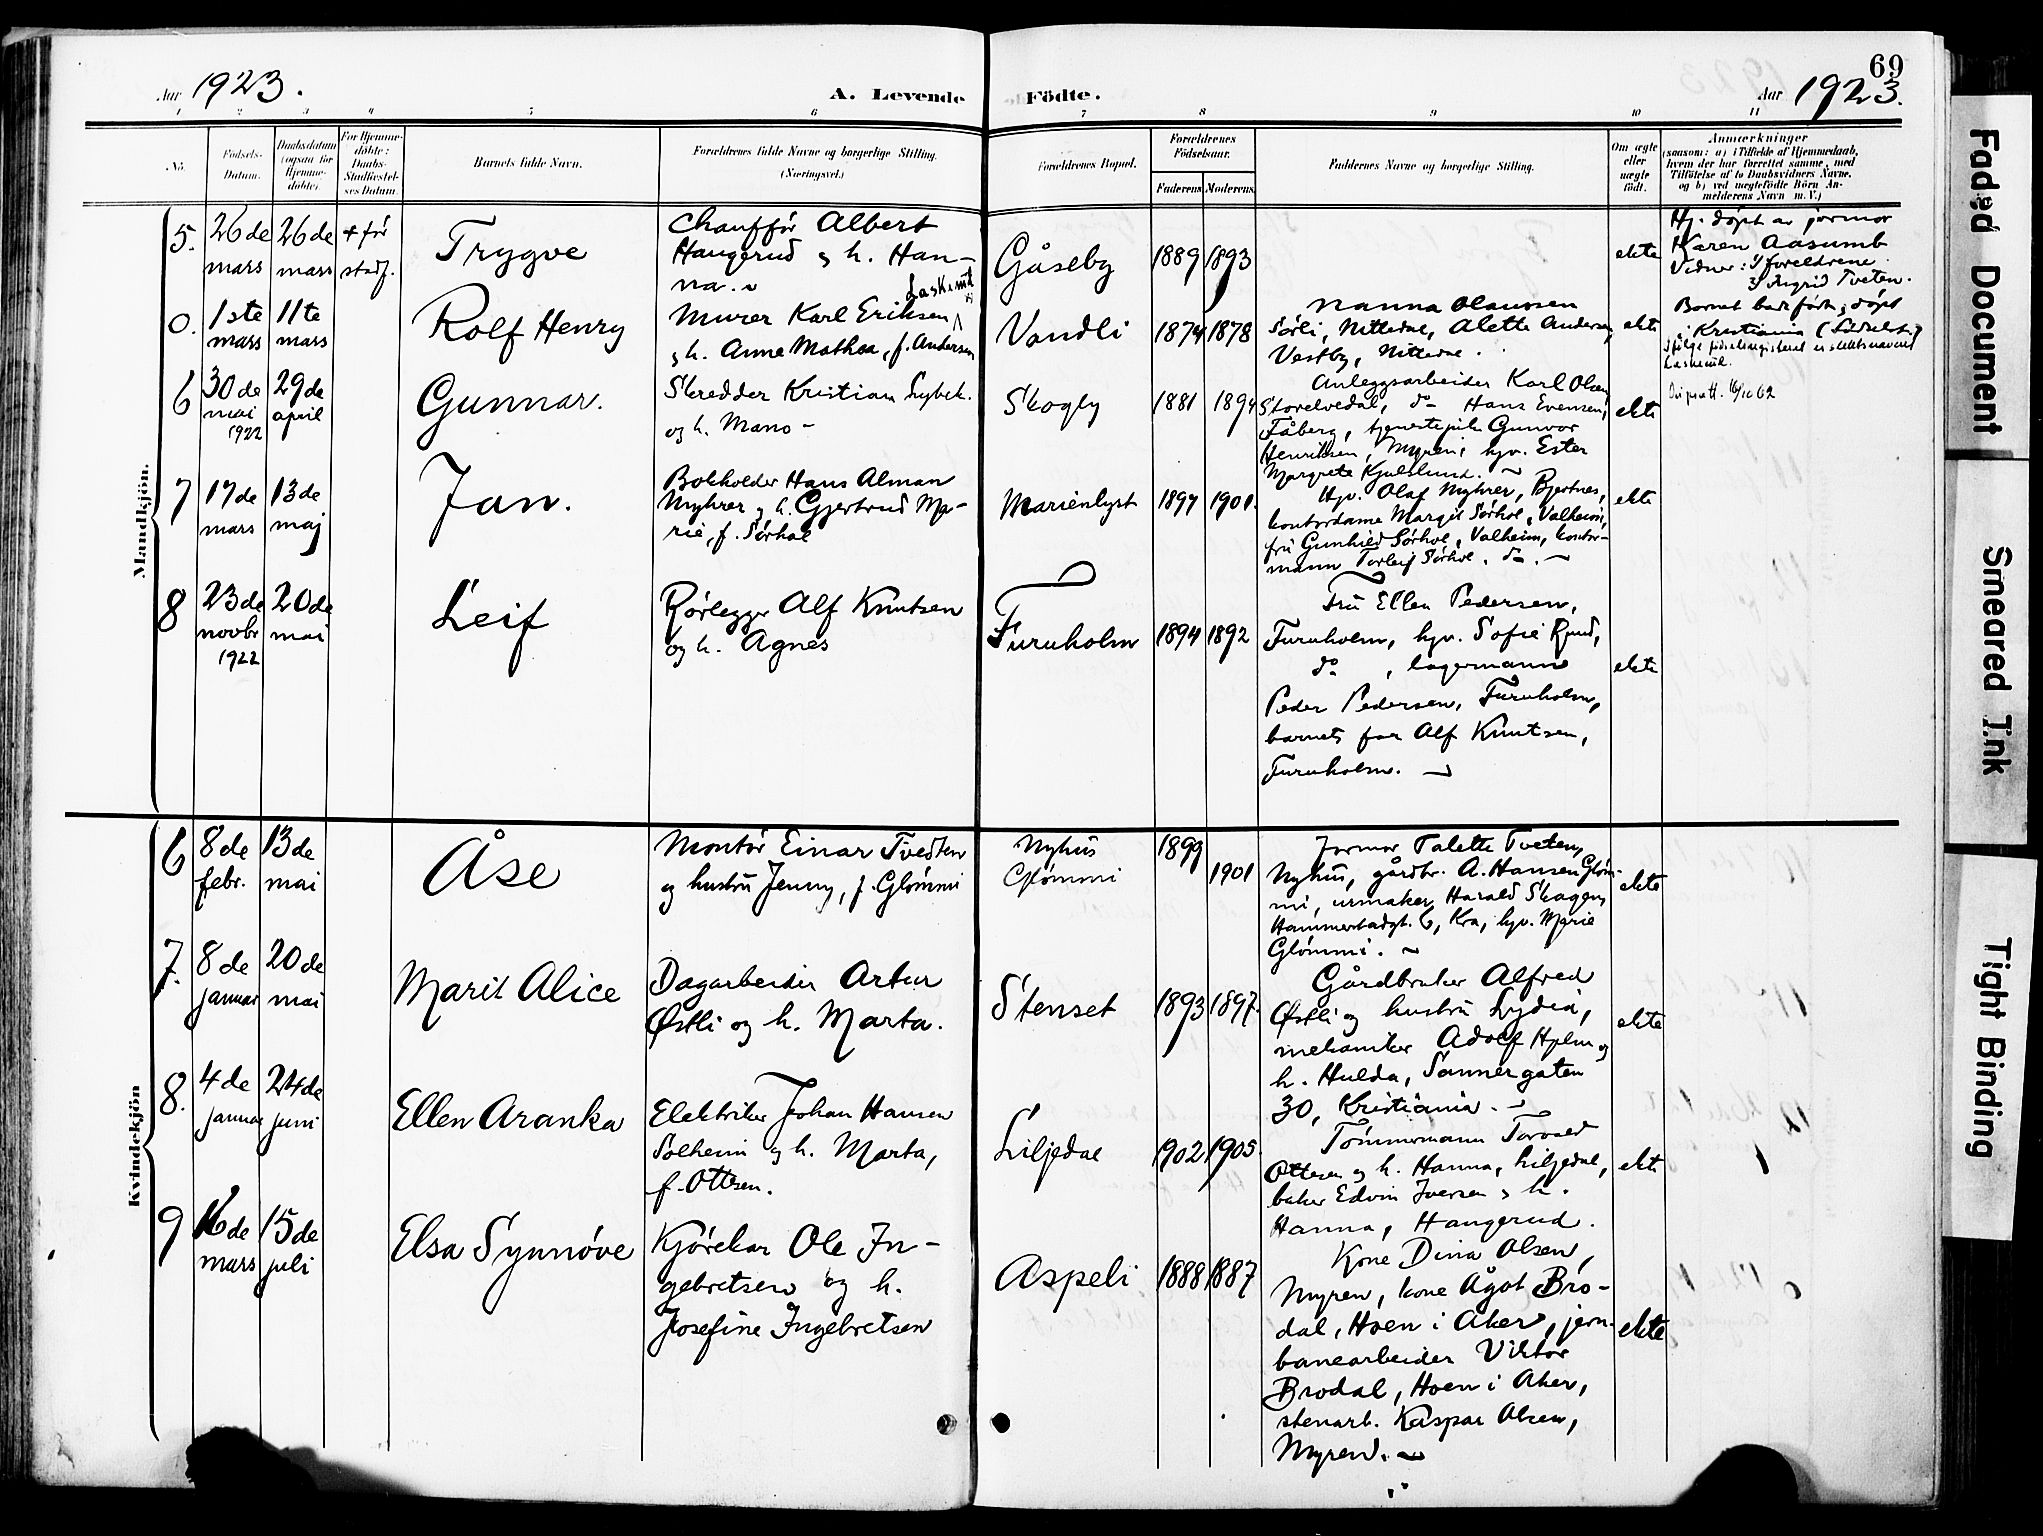 69
Aar 1923. A. Levende Födte. Aar 1923.
1 2 3 4 5 6 7 8 9 10 11
No. Födsels-Datum. Daabsdatum (ogsaa for Hjemme-döbte). For Hjemme-döbte: Daabs-Stadfæstel-ses Datum. Barnets fulde Navn. Forældrenes fulde Navne og borgerlige Stilling. (Næringsvei.) Forældrenes Bopæl. Forældrenes Födselsaar. Faderens Moderens Faddernes Navne og borgerlige Stilling. Om ægte eller uægte födt. Anmærkninger
(saasom: a) i Tilfælde af Hjemmedaab,
hvem der har forrettet samme, med
Tilföielse af to Daabsvidners Navne,
og b) ved uægtefödte Börn An-
melderens Navn m. V.)
Mandkjön.
5. 26de mars
26de mars
+ før stadf.
Trygve
Chauffør Albert
Haugerud og h. Han-
na.
Gåseby
1889 1893
ekte
Hj. døpt av jormor
Karen Aasumb
Vidner: 1) foreldrene
2) Ingrid Tveten.
0. 1ste mars
11te mars
Rolf Henry
Laskemik
Murer Karl Eriksen
og h. Anna Mathea, f. Andersen
Vandli
1874 1878
Nanna Olaussen
Sørli, Nittedal, Alette Andersen,
Vestby, Nittedal.
ekte
Barnet bade født og døpt
i Kristiania
6 30de mai 1922
29de april
Gunnar.
Skredder Kristian Lybek.
og h. Marie
Skogly
1881 1894
Anleggsarbeider Karl Olsen
Storelvedal, do Hans Evensen,
Fåberg, tjenestepike Gunvor
Henriksen, Myren, hgv. Ester
Margrete Kjelslund.
ekte
7 17de mars
13de maj
Jan.
Bokholder Hans Alman
Myhrer og h. Gjertrud Ma-
rie, f. Sørhol
Marienlyst
1897 1901.
Hgv. Olaf Myhrer, Bjertnes,
kontordame Margit Sørhol, Valheim,
frú Gunhild Sørhol, Valheim, kontor-
mann Torleif Sørhol. do.
ekte
8 23de novbr 1922
20de mai
Leif
Rørlegger Alf Knutsen
og h. Agnes
Furuholm
1894 1892
Frú Ellen Pedersen,
Furuholm, hgv. Sofie Ruud,
do, lagermann
Peder Pedersen, Furuholm,
barnets far Alf Knutsen,
Furuholm.
ekte
Kvindekjön
6 8de febr.
13de mai
Åse
Montør Einar Tvedten
og hustrú Jenny, f. Glømmi
Nyhús
Glømmi
1899 1901
Jormor Talette Tveten,
Nyhús, gårdbr. A. Hansen Gløm-
mi, urmaker Harald Skagen,
Hammerstadgt. 6, Kra, hgv. Marie
Glømmi.
ekte
7. 8de januar
20de mai
Marit Alice
Dagarbeider Artur
Østli og h. Marta.
Stenset
1893 1897.
Gårdbruker Alfred
Østli og hustrú Lydia,
mekaniker Adolf Holm og
h. Hulda, Sannergaten
30, Kristiania.
ekte
8. 4de januar
24de juni
Ellen Aranka
Elektriker Johan Hansen
Solheim og h. Marta,
f. Ottesen.
Liljedal
1902 1905
Tømmermann Torvald
Ottesen og h. Hanna, Liljedal,
baker Edvin Iversen og h.
Hanna, Haugerud.
ekte
9 16de mars
15de juli
Elsa Synnøve
Kjørekar Ole In-
gebretsen og h.
Josefine Ingebretsen
Aspeli
1888 1887
Kone Dina Olsen,
Myren, kone Ågot Bro-
dal, Hoen i Aker, jern-
banearbeider Viktor
Brodal, Hoen i Aker,
stenarb. Kaspar Olsen,
Myren.
ekte
Faded Document
Smeared Ink
Tight Binding